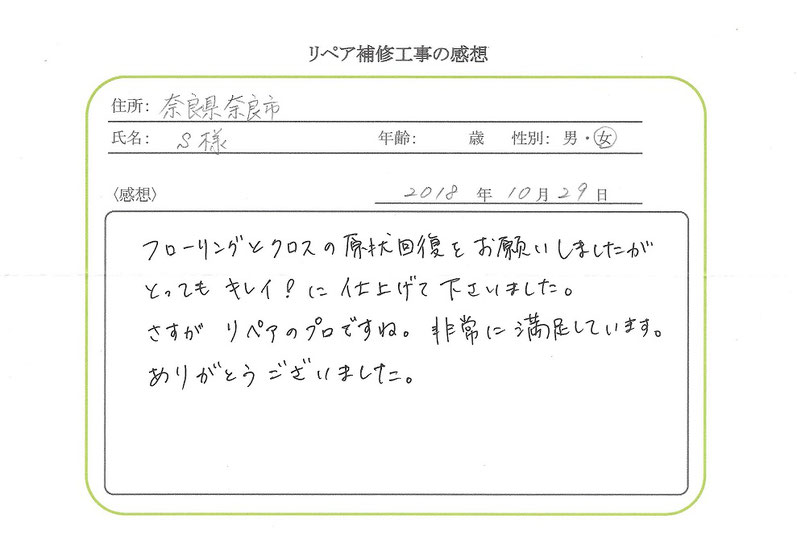 リペア補修工事の感想
住所: 奈良県奈良市
氏名: S様 年齢: 歳 性別: 男・女
〈感想〉 2018 年 10 月 29 日
フローリングとクロスの原状回復をお願いしましたが
とってもキレイ!に仕上げて下さいました。
さすが リペアのプロですね。非常に満足しています。
ありがとうございました。